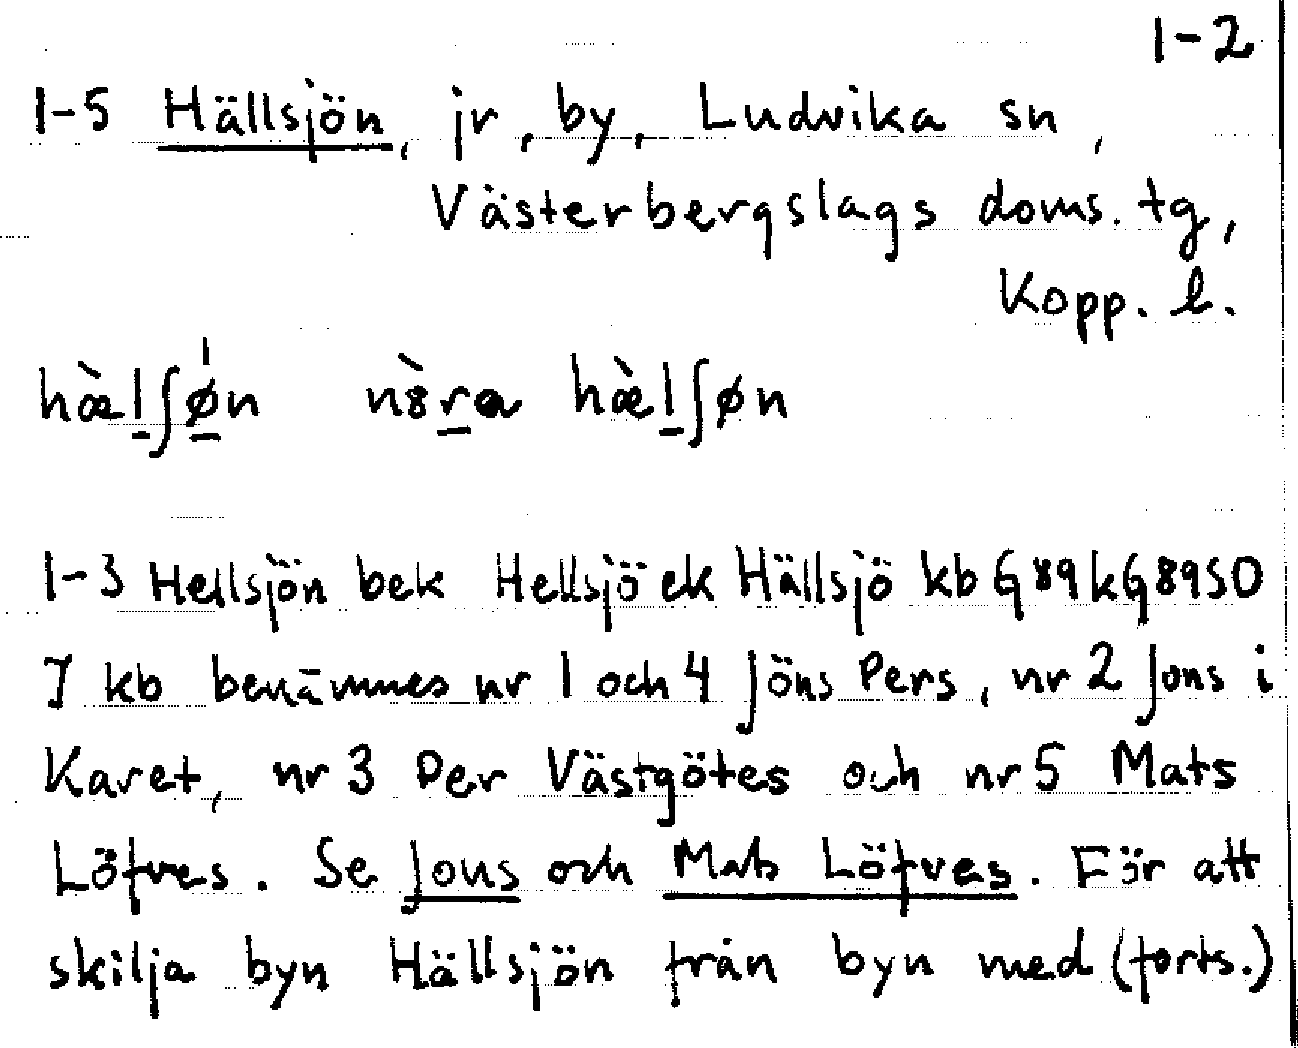 1-2
1-5 Hällsjön, jr, by, Ludvika sn,
Västerbergslags doms. tg,
Kopp. l.
hæ̀lʃǿn nȣ̀ra hæ̀lʃøn
1-3 Hellsjön bek Hellsjö ek Hällsjö kb G89kG89SO
I kb benämnes nr 1 och 4 Jöns Pers, nr 2 Jons i
Karet, nr 3 Per Västgötes och nr 5 Mats
Löfves. Se Jons och Mats Löfves. För att
skilja byn Hällsjön från byn med (forts.)